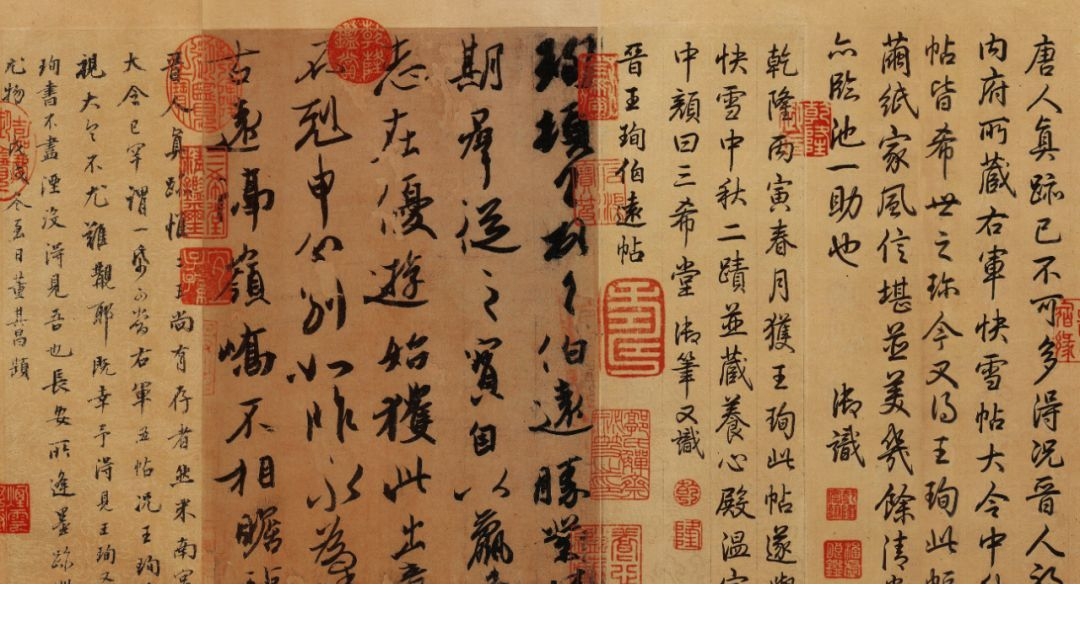 唐人真跡已不可多得況晉人
内府所藏右軍快雪帖大令中
帖皆希世之珍今又得王珣此帖
繭紙家風信堪並美幾餘清
亦臨池一助也 御識
乾隆丙寅春月獲王珣此帖遂與
快雪中秋二蹟並藏養心殿溫
中顏曰三希堂御筆又識
乾
隆
晉王珣伯遠帖
珣頓首頓首伯遠勝業情
期群從之寶自以羸
志在優遊始獲此出
不剋申分別如昨永為
古遠隔嶺嶠不相瞻
晉人真跡惟二王尚有存者然米南宮
大令已罕謂一紙可當右軍五帖況王珣
視大令不尤難覯耶既幸予得見王珣又
珣書不盡湮沒得見吾也長安所逢墨跡
尤物 冬至日董其昌題